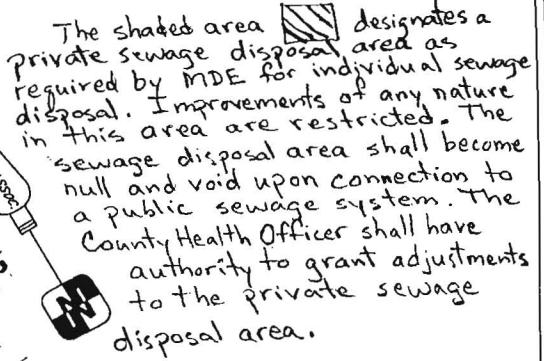 The shaded area designates a
private sewage disposal area as
required by MDE for individual sewage
disposal. Improvements of any nature
in this area are restricted. The
sewage disposal area shall become
null and void upon connection to
a public sewage system. The
County Health Officer shall have
authority to grant adjustments
to the private sewage
disposal area.